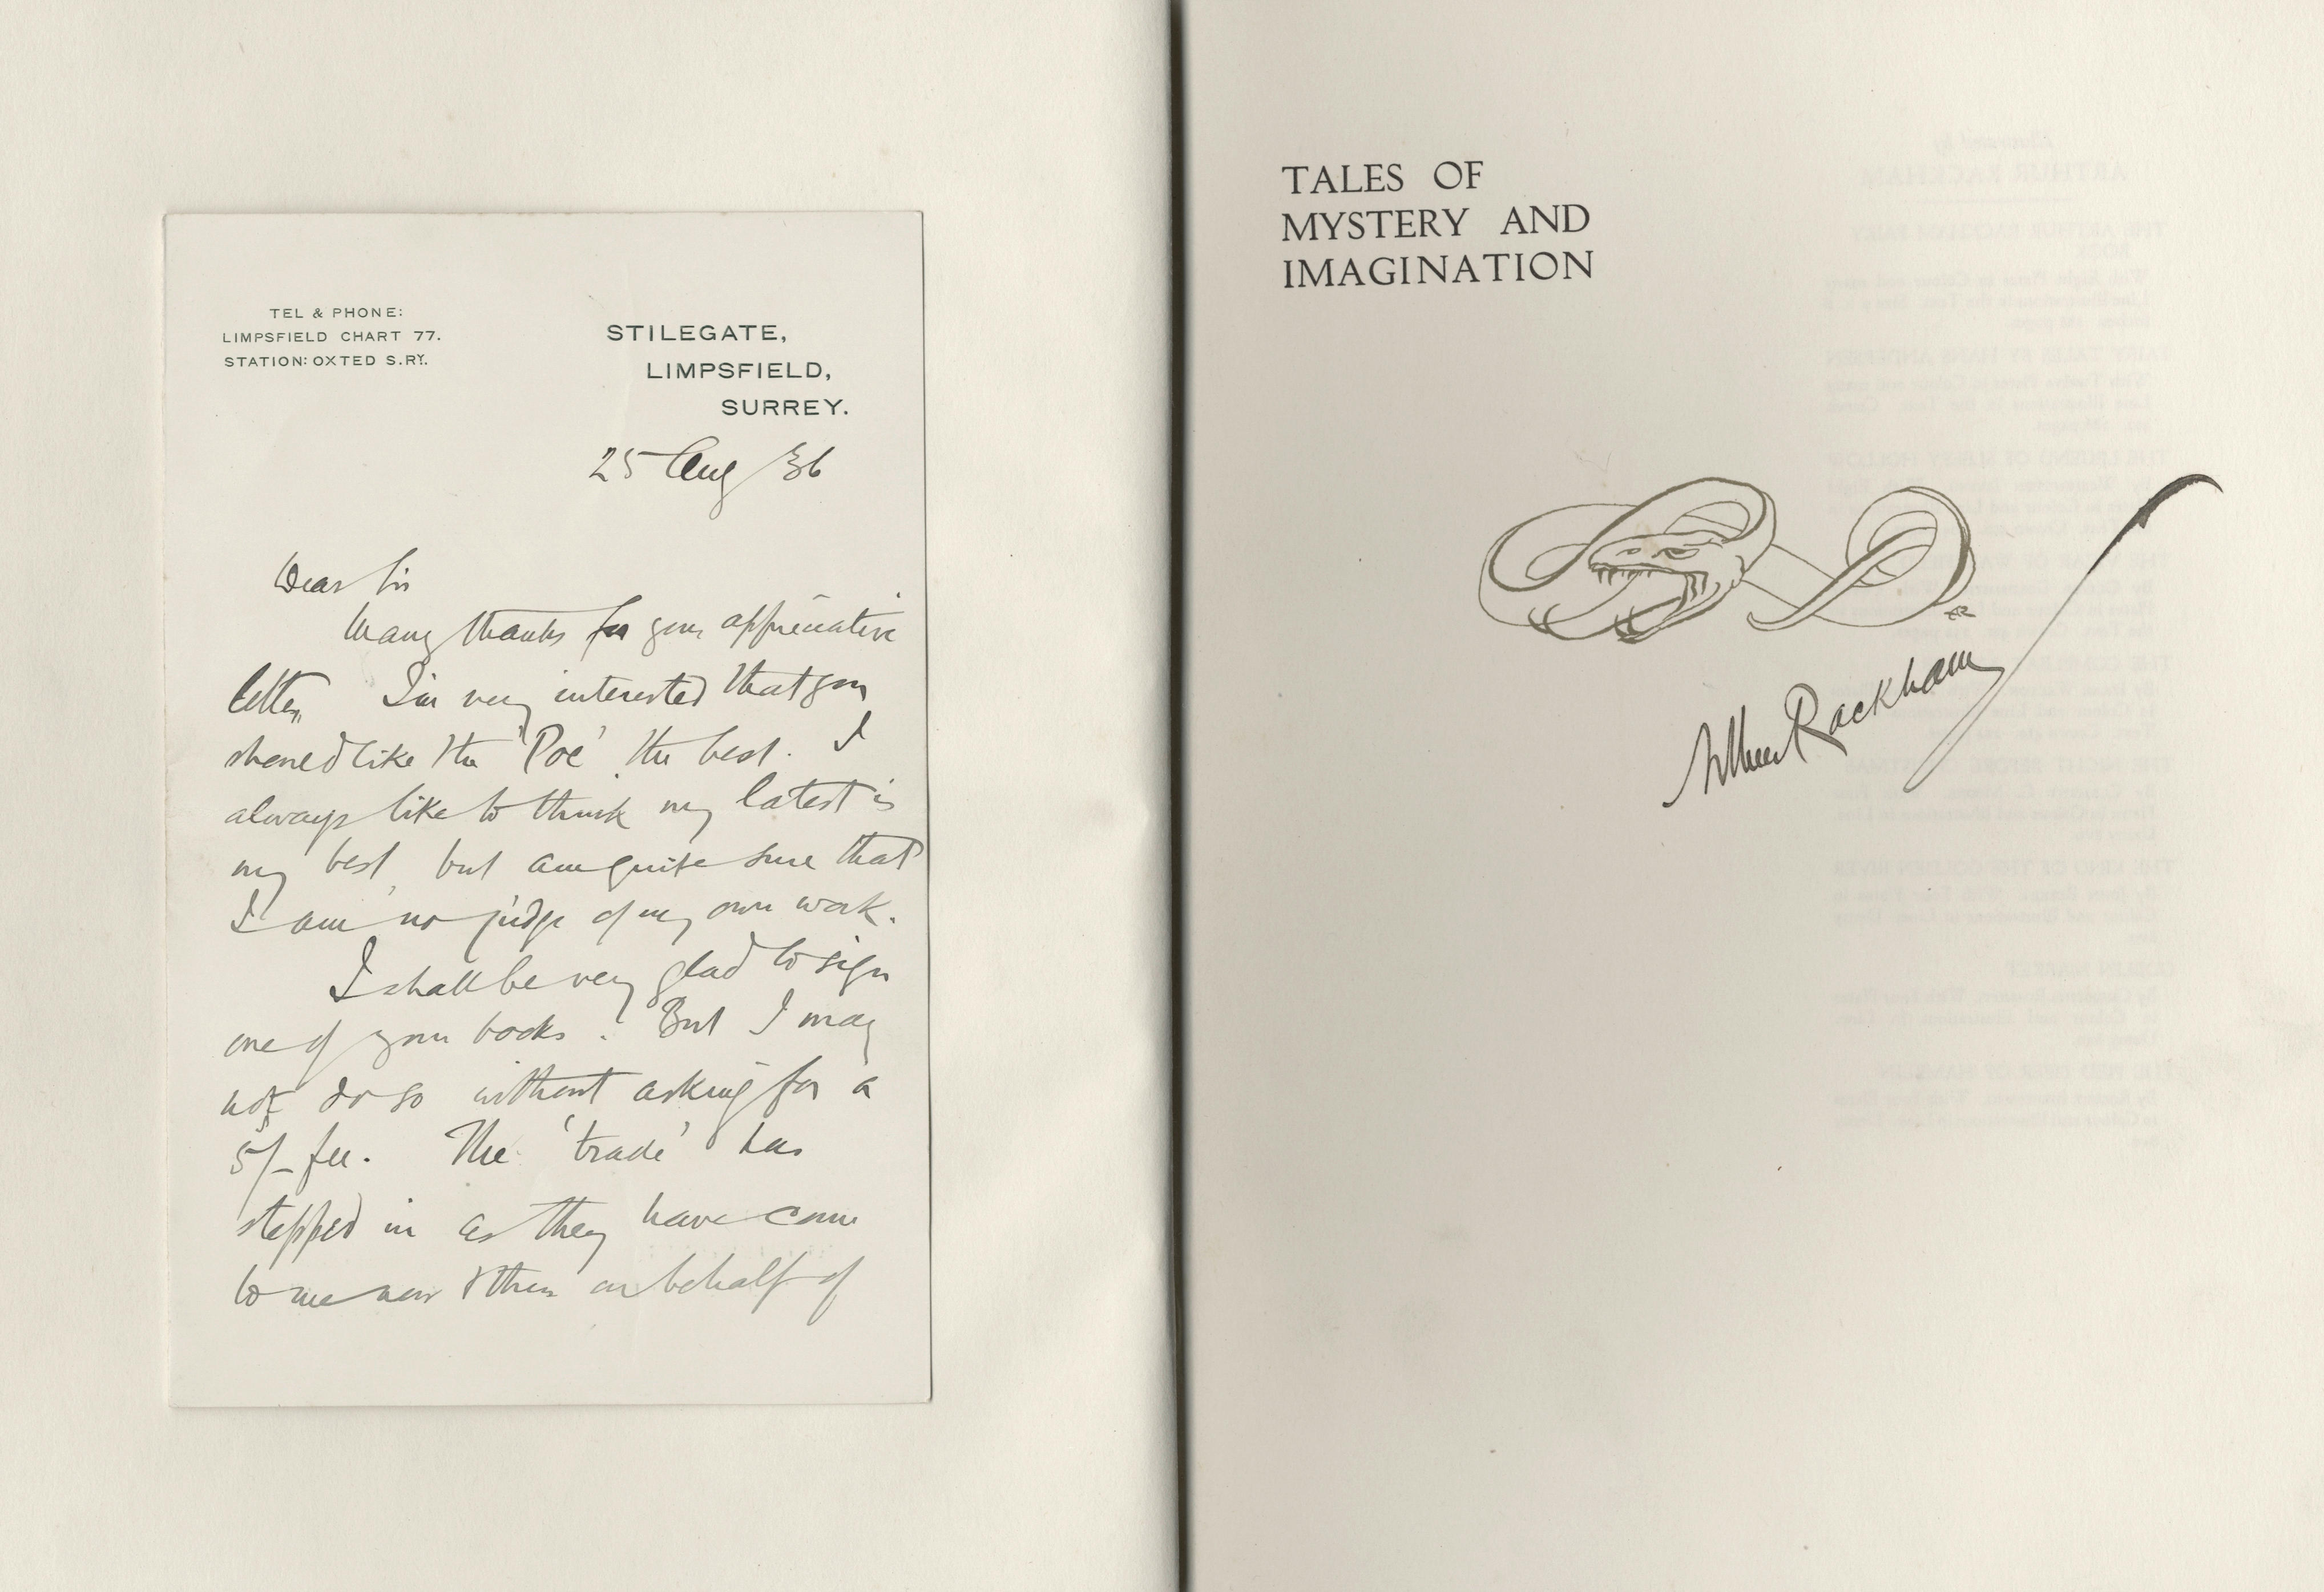 TEL & PHONE:
LIMPSFIELD CHART 77.
STATION: OXTED S.RY.
STILEGATE,
LIMPSFIELD,
SURREY.
25 Aug /36
Dear Sir
Many thanks for your appreciative
letter. I'm very interested that you
should like the 'Poe' the best. I
always like to think my latest is
my best, but am quite sure that
I am no judge of my own work.
I shall be very glad to sign
one of your books. But I may
not do so without asking for a
5/- fee. The 'trade' has
stepped in as they have come
to me now & then on behalf of
TALES OF
MYSTERY AND
IMAGINATION
AR
Arthur Rackham